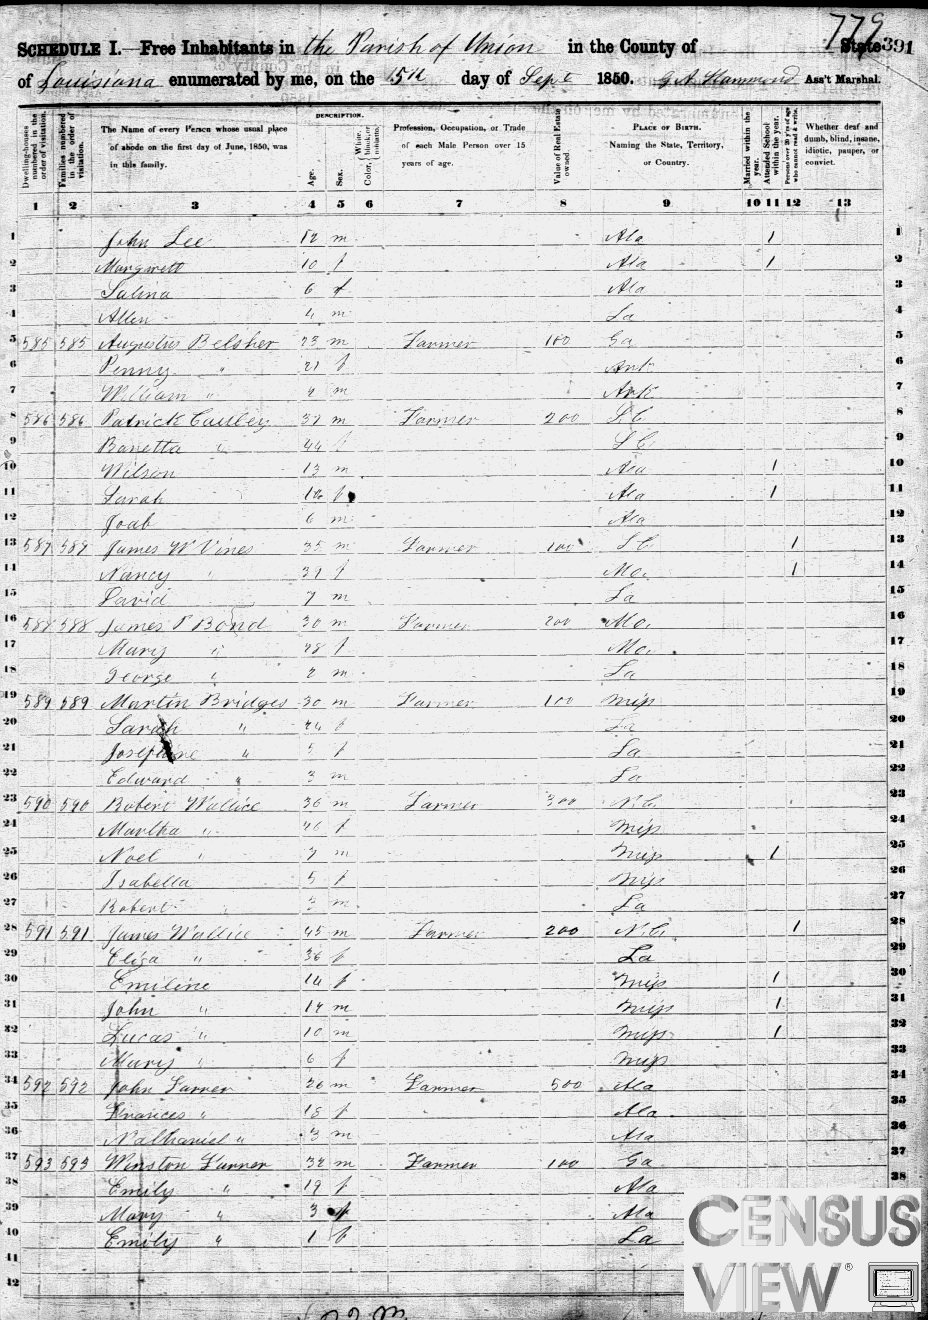 779
SCHEDULE I.—Free Inhabitants in the Parish of Union in the County of State 391
of Louisiana enumerated by me, on the 15th day of Sept 1850. Hammond Ass't Marshal.
Dwelling-houses numbered in the order of visitation.
Families numbered in the order of visitation.
The Name of every Person whose usual place of abode on the first day of June, 1850, was in this family.
DESCRIPTION.
Age.
Sex.
Color, White, black, or mulatto.
Profession, Occupation, or Trade of each Male Person over 15 years of age.
Value of Real Estate owned.
PLACE OF BIRTH. Naming the State, Territory, or Country.
Married within the year.
Attended School within the year.
Persons over 20 y'rs of age who cannot read & write.
Whether deaf and dumb, blind, insane, idiotic, pauper, or convict.
1 2 3 4 5 6 7 8 9 10 11 12 13
1 John Lee 12 m Ala 1 1
2 Margrett 10 f Ala 1 2
3 Salina 6 f Ala 3
4 Allen 4 m La 4
5 585 585 Augustus Belsher 23 m Farmer 100 Ga 5
6 Penny " 21 f Ark 6
7 William " 2 m Ark 7
8 586 586 Patrick 37 m Farmer 200 S.C 8
9 Baretta " 44 f S C 9
10 Wilson 13 m Ala 1 10
11 Sarah f Ala 1 11
12 Joab 6 m Ala 12
13 587 587 James W Vines 35 m Farmer 100 S C 1 13
14 Nancy " 39 f Mo. 1 14
15 David 7 m La 15
16 588 588 James P Bond 30 m Farmer 200 Mo. 16
17 Mary " 28 f Mo. 17
18 George " 2 m La 18
19 589 589 Martin Bridges 30 m Farmer 100 Miss 19
20 Sarah " 24 f La 20
21 Josephine " 5 f La 21
22 Edward " 3 m La 22
23 590 590 Robert Wallice 36 m Farmer 300 N.C. 23
24 Martha " 26 f Miss 24
25 Noel " 7 m Miss 1 25
26 Isabella 5 f Miss 26
27 Robert " 3 m La 27
28 591 591 James Wallice 45 m Farmer 200 N.C. 1 28
29 Eliza " 36 f La 29
30 Emiline 16 f Miss 1 30
31 John " 14 m Miss 1 31
32 Lucas " 10 m Miss 1 32
33 Mary " 6 f Miss 33
34 592 592 John Farrer 26 m Farmer 500 Ala 34
35 Frances " 18 f Ala 35
36 Nathaniel " 3 m Ala 36
37 593 593 Winston Farrer 32 m Farmer 100 Ga 37
38 Emily " 19 f Ala 38
39 Mary " 3 f Ala
40 Emily " 1 f La
41
42
CENSUS
VIEW®